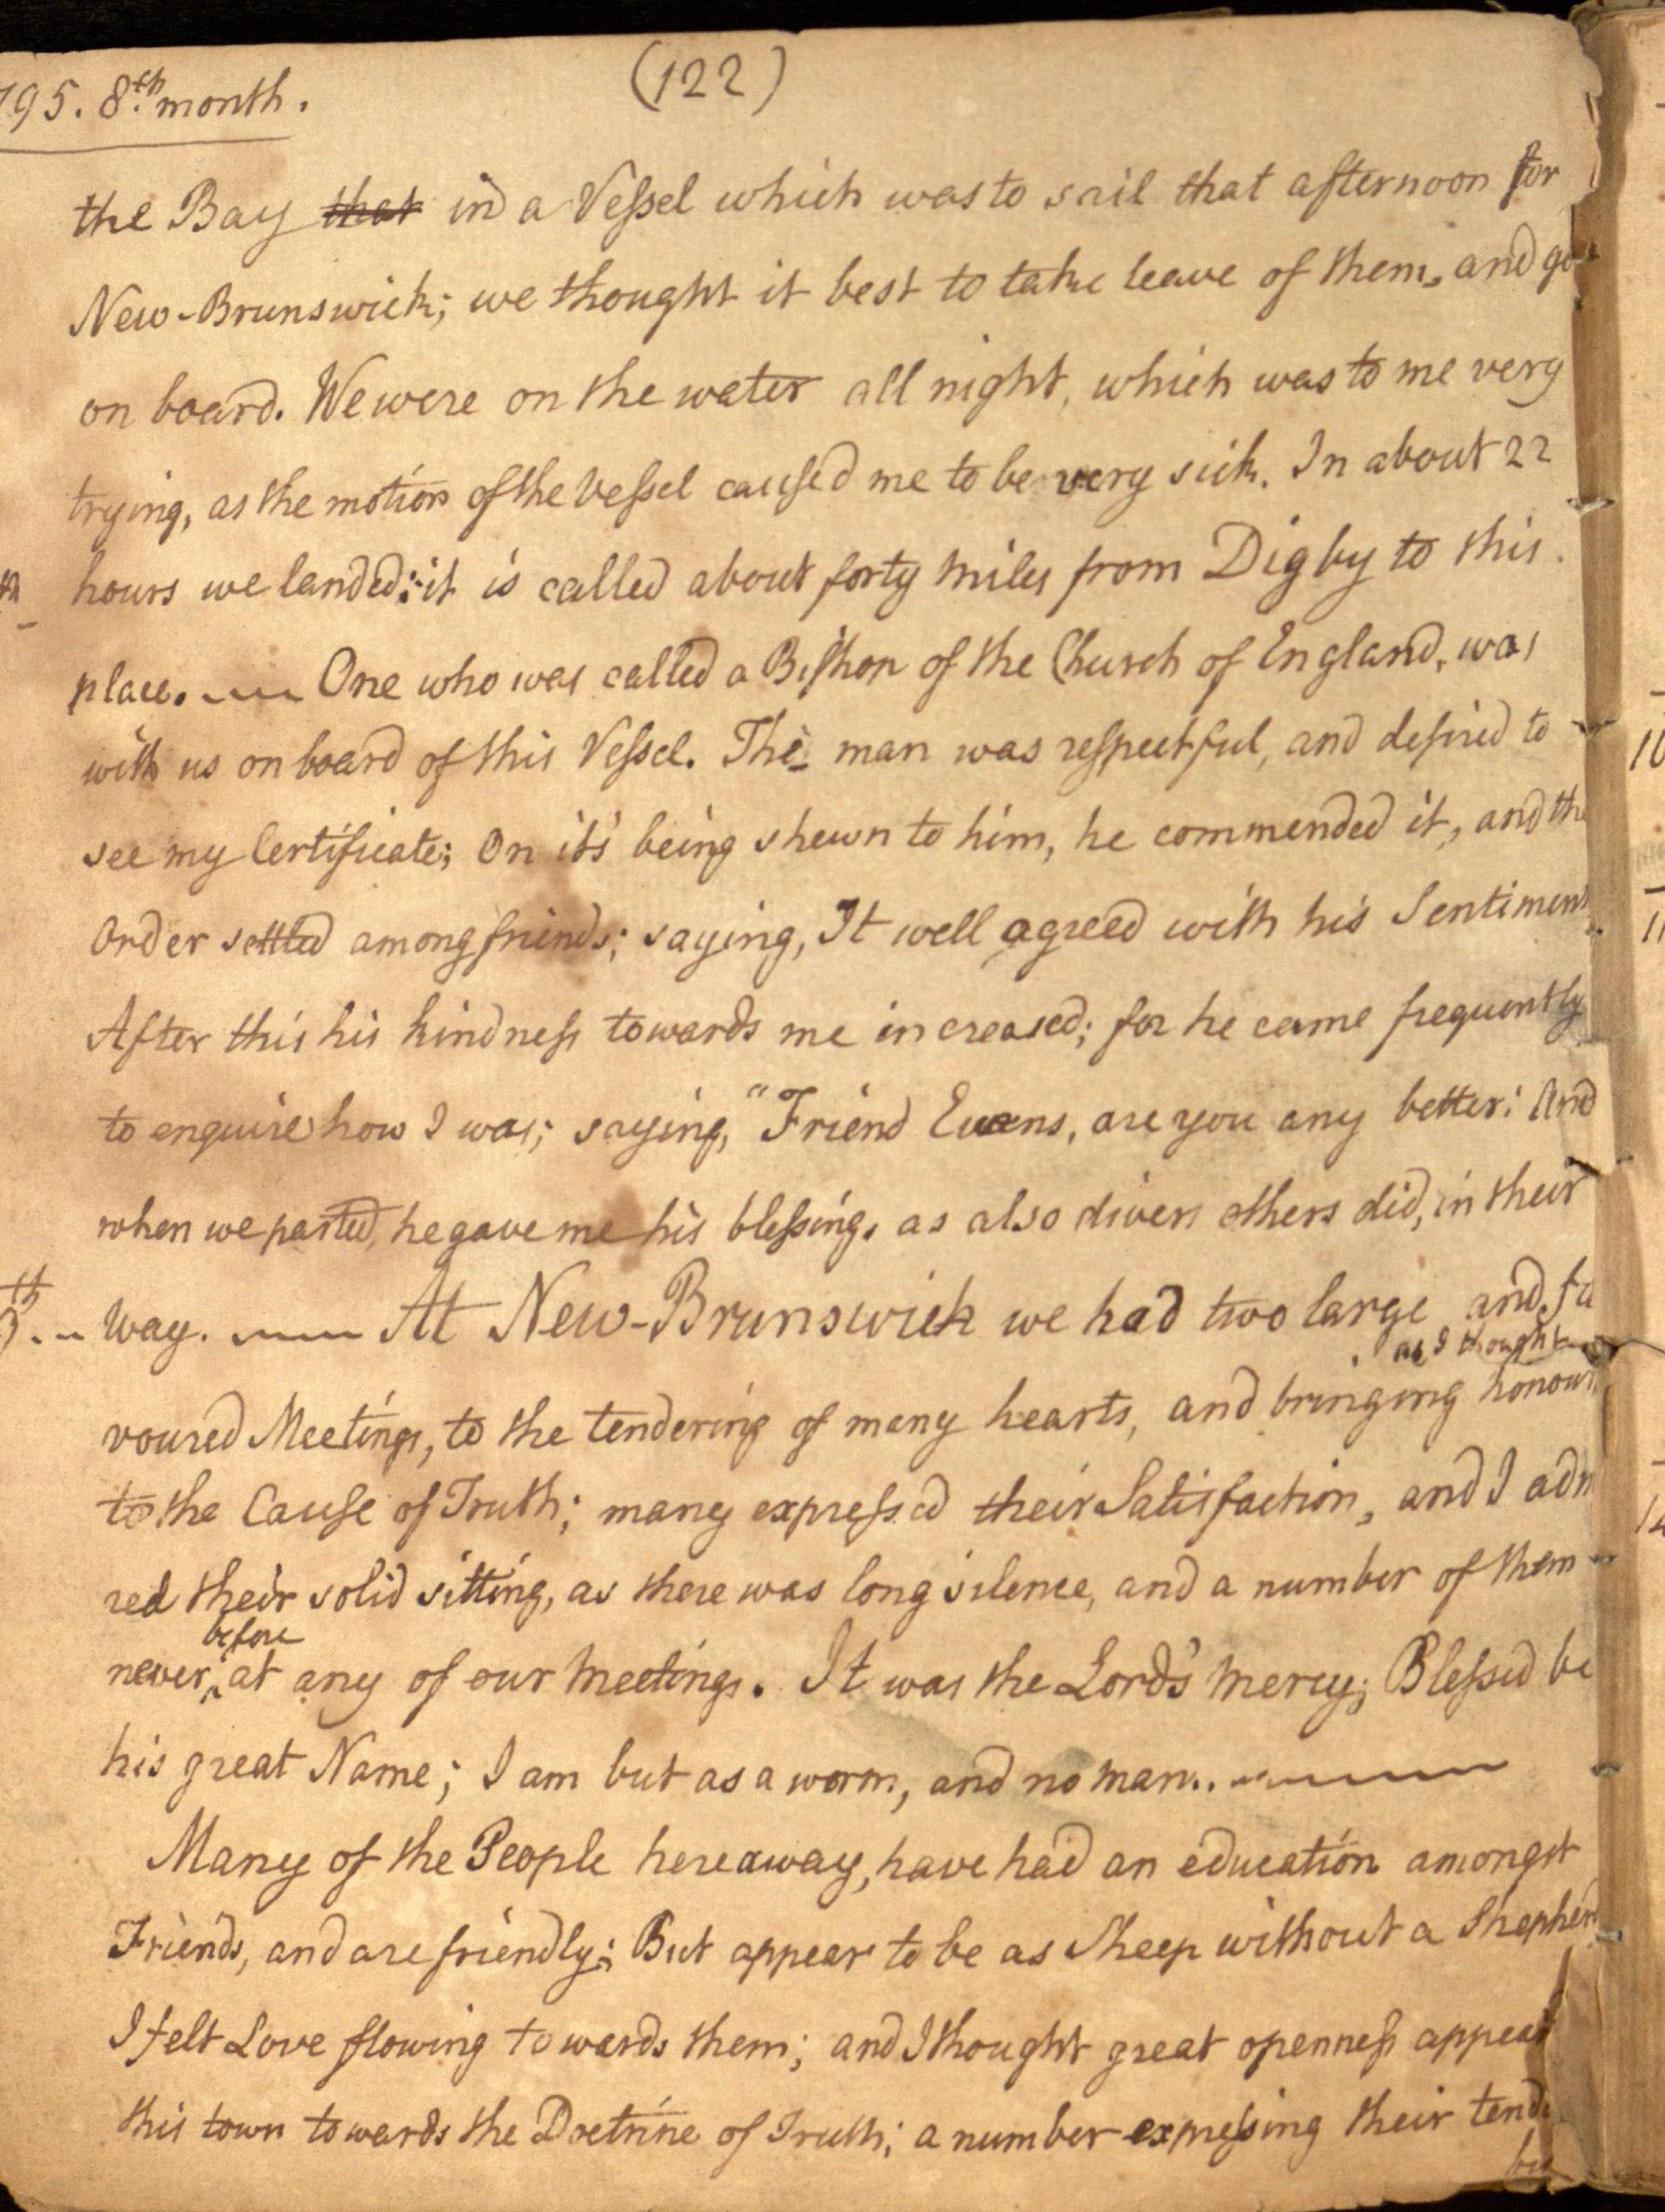 795. 8th month.
(122)
the Bay that in a Vessel which was to sail that afternoon for
New-Brunswick; we thought it best to take leave of them, and go
on board. We were on the water all night, which was to me very
trying, as the motion of the Vessel caused me to be very sick. In about 22
hours we landed: it is called about forty miles from Digby to this
place. —— One who was called a Bishop of the Church of England, was
with us on board of this Vessel. The man was respectful, and desired to
see my Certificate; On it's being shewn to him, he commended it, and the
Order settled among friends; saying, It well agreed with his Sentiment
After this his kindness towards me increased; for he came frequently
to enquire how I was; saying, "Friend Evans, are you any better: And
when we parted, he gave me his blessing, as also divers others did, in their
th
way. —— At New-Brunswick we had two large and fa
as I thought
voured Meetings, to the tendering of many hearts, and bringing honour
to the Cause of Truth; many expressed their Satisfaction, and I adm
red their solid sitting, as there was long silence, and a number of them
before
never ^ at any of our Meetings. It was the Lord's mercy; Blessed be
his great Name; I am but as a worm, and no man. ——
Many of the People hereaway, have had an education amongst
Friends, and are friendly; But appear to be as Sheep without a Shepherd
I felt Love flowing towards them; and I thought great openness appear
this town towards the Doctrine of Truth; a number expressing their tend
10
11